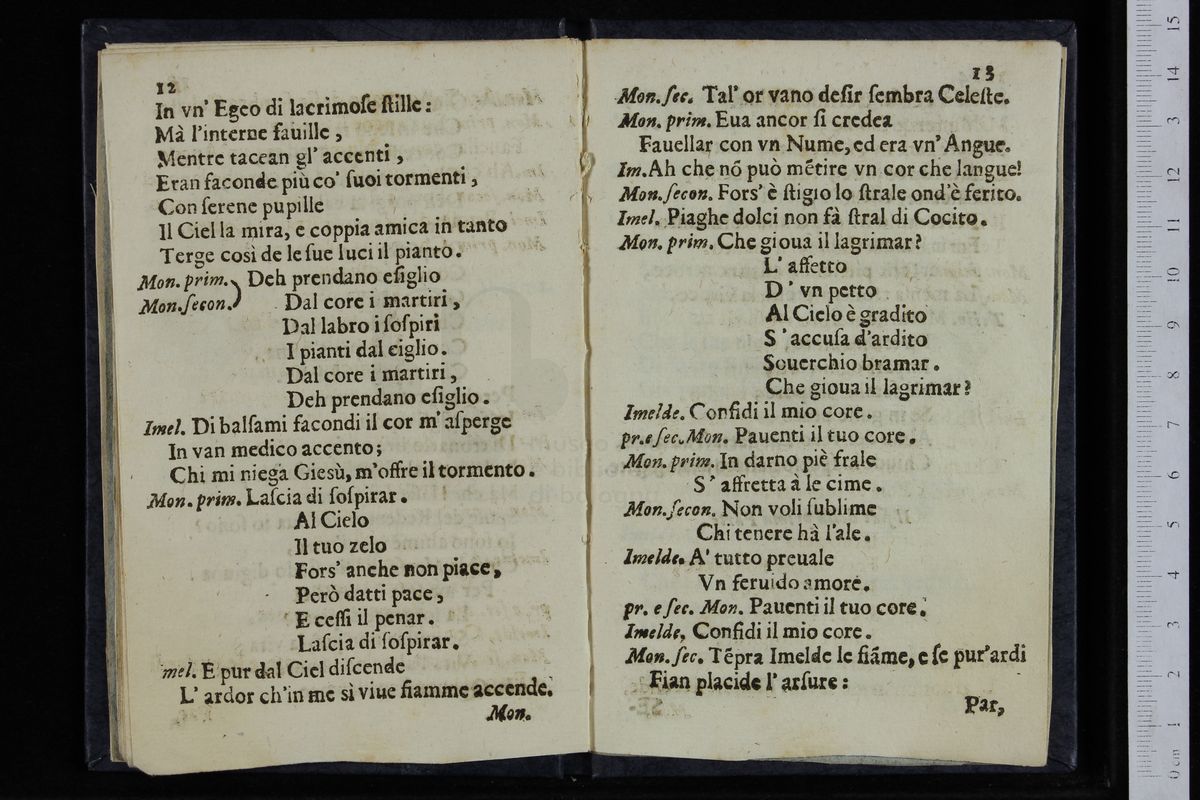 12
In vn' Egeo di lacrimoſe ſtille:
Mà l'interne fauille ,
Mentre tacean gl' accenti ,
Eran faconde più co' ſuoi tormenti ,
Con ſerene pupille
Il Ciel la mira, e coppia amica in tanto
Terge così de le ſue luci il pianto.
Mon. prim. ) Deh prendano eſiglio
Mon. ſecon. ) Dal core i martiri ,
Dal labro i ſoſpiri
I pianti dal ciglio.
Dal core i martiri ,
Deh prendano eſiglio .
Imel. Di balſami facondi il cor m' aſperge
In van medico accento;
Chi mi niega Giesù, m'offre il tormento .
Mon. prim. Laſcia di ſoſpirar .
Al Cielo
Il tuo zelo
Fors' anche non piace,
Però datti pace ,
E ceſſi il penar.
Laſcia di ſoſpirar.
mel. E pur dal Ciel diſcende
L' ardor ch'in me sì viue fiamme accende.
Mon.
13
Mon. ſec. Tal' or vano deſir ſembra Celeſte.
Mon. prim. Eua ancor ſi credea
Fauellar con vn Nume, ed era vn' Angue.
Im. Ah che nõ può mẽtire vn cor che langue!
Mon. ſecon. Fors' è ſtigio lo ſtrale ond'è ferito.
Imel. Piaghe dolci non fà ſtral di Cocito .
Mon. prim. Che gioua il lagrimar ?
L' affetto
D ' vn petto
Al Cielo è gradito
S ' accuſa d'ardito
Souerchio bramar .
Che gioua il lagrimar ?
Imelde. Confidi il mio core .
pr. e ſec. Mon. Pauenti il tuo core .
Mon. prim. In darno piè frale
S ' affretta à le cime .
Mon. ſecon. Non voli ſublime
Chi tenere hà l'ale .
Imelde. A' tutto preuale
Vn feruido amore.
pr. e ſec. Mon. Pauenti il tuo core .
Imelde, Confidi il mio core .
Mon. ſec. Tẽpra Imelde le fiãme, e ſe pur'ardi
Fian placide l' arſure :
Par,
0 cm 1 2 3 4 5 6 7 8 9 10 11 12 3 14 15